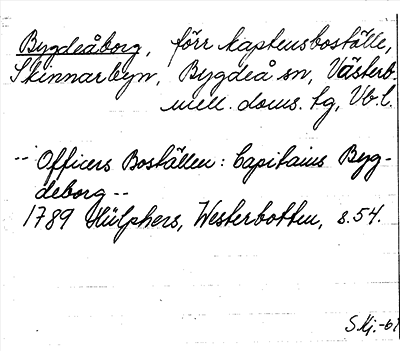 Bygdeåborg, förr kaptensboställe,
Skinnarbyn, Bygdeå sn, Västerb.
mell. doms. tg, Vb. l.
-- Officers Boställen: Capitains Byg-
deborg --
1789 Hülphers, Westerbotten, s. 54.
S.Kj.-61